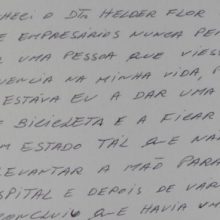 HECI O DTº HELDER FLOR
E EMPRESÁRIOS NUNCA PEN
UMA PESSOA QUE VIESS
UENCIA NA MINHA VIDA, P
ESTAVA EU A DAR UMA
E BICICLETA E A FICAR
M ESTADO TAL QUE NÃ
LEVANTAR A MÃO PARA
SPITAL E DEPOIS DE VÁR
CONCLUIU QUE HAVIA UM